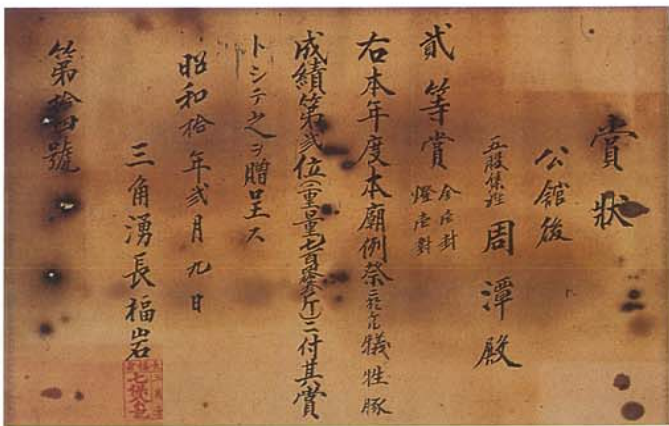 賞狀
公舘後
五股集雅 周潭殿
貳等賞 金牌壹封 燈壹對
右本年度本廟例祭ニ於ケル犠牲豚
成績第貳位(重量七百參斤)ニ付其賞
トシテ之ヲ贈呈ス
昭和拾年貳月九日
三角湧長福岩
第拾四號